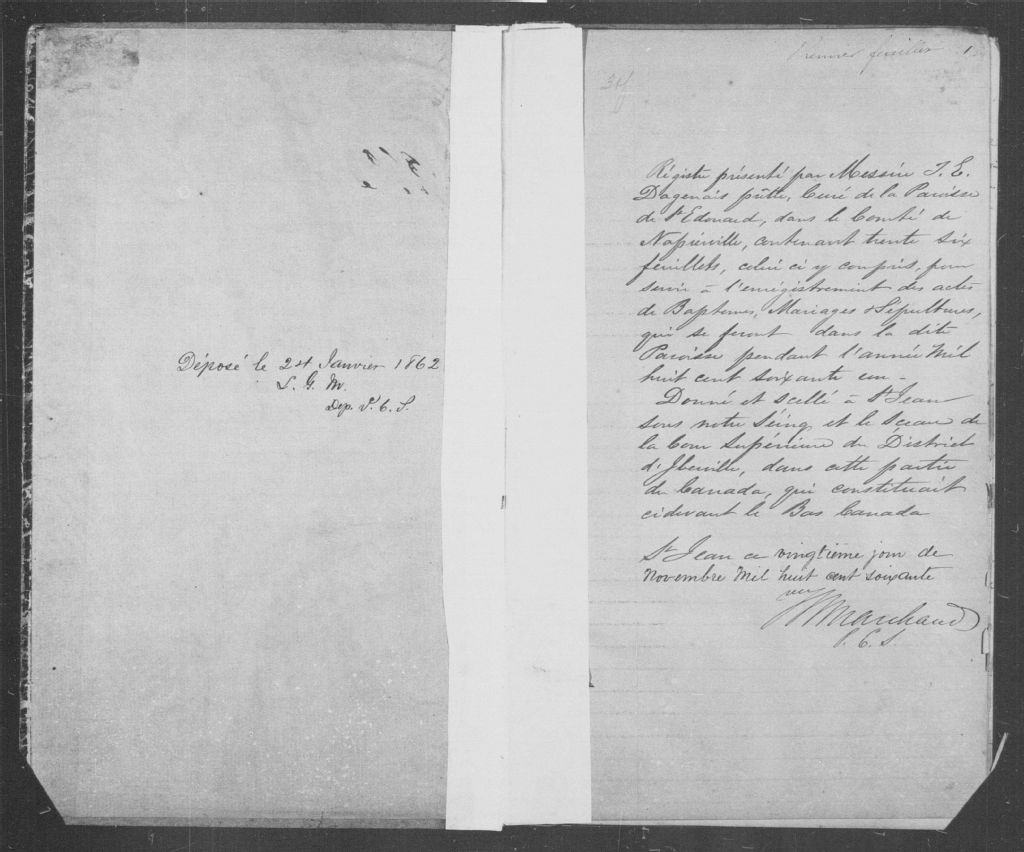 Déposé le 24 Janvier 1862
L. G. M.
Dep. P. C. S.
Premier feuillet 1
Régistre présenté par Messire J. E.
Dagenais prêtre, Curé de la Paroisse
de St Edouard, dans le Comté de
Napierville, contenant trente six
feuillets, celui ci y compris, pour
servir à l'enrégistrement des actes
de Baptemes, Mariages & Sépultures,
qui se feront dans la dite
Paroisse pendant l'année Mil
huit cent soixante un -
Donné et scellé à St Jean
sous notre Séing et le Sceau de
la Cour Supérieure du District
d'Iberville, dans cette partie
du Canada, qui constituait
cidevant le Bas Canada
St Jean ce vingtième jour de
Novembre Mil huit cent soixante
Marchand
P. C. S.